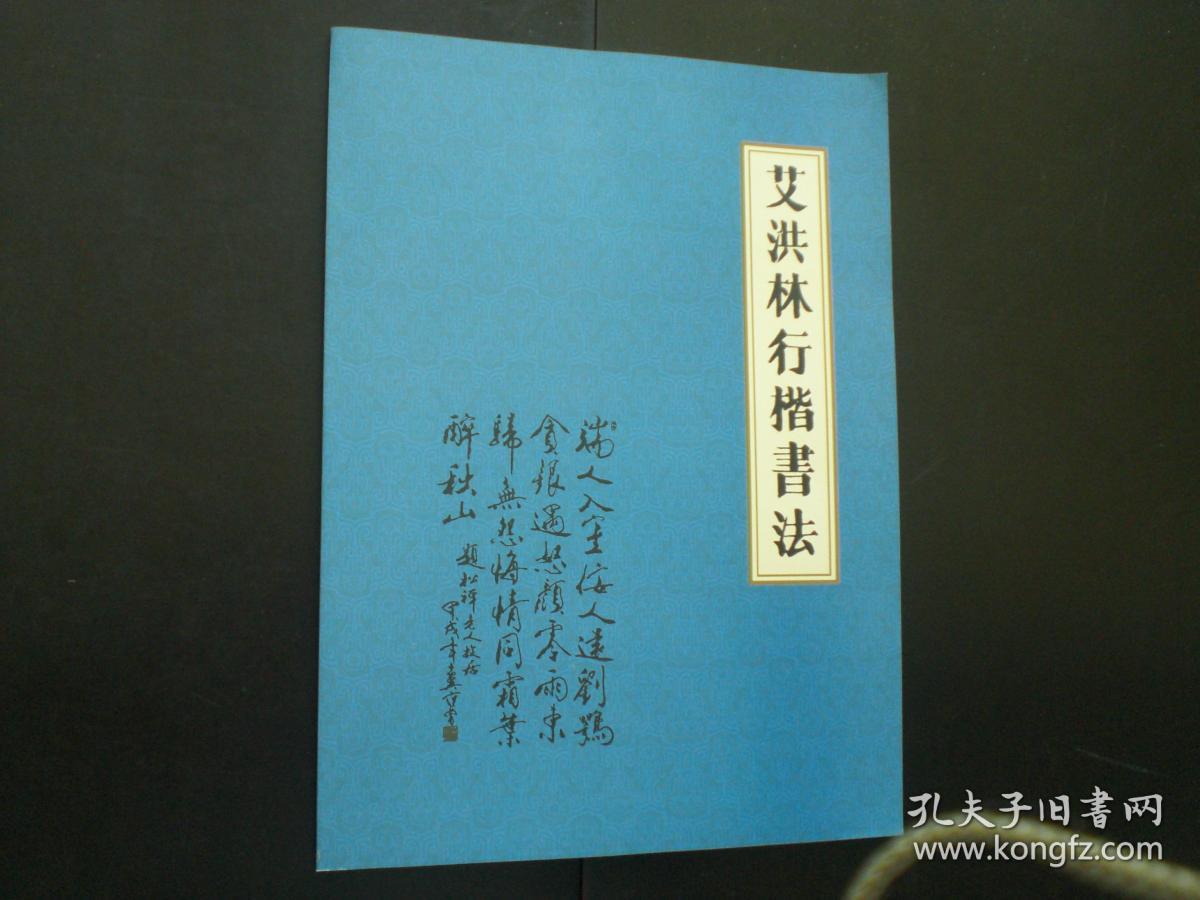 艾洪林行楷書法
端人入室佞人遠劉鶚
貪銀遇怒顏零雨東
歸無怨悔情同霜葉
醉秋山
題松禪老人故居
甲戌年
孔夫子旧書网
www.kongfz.com